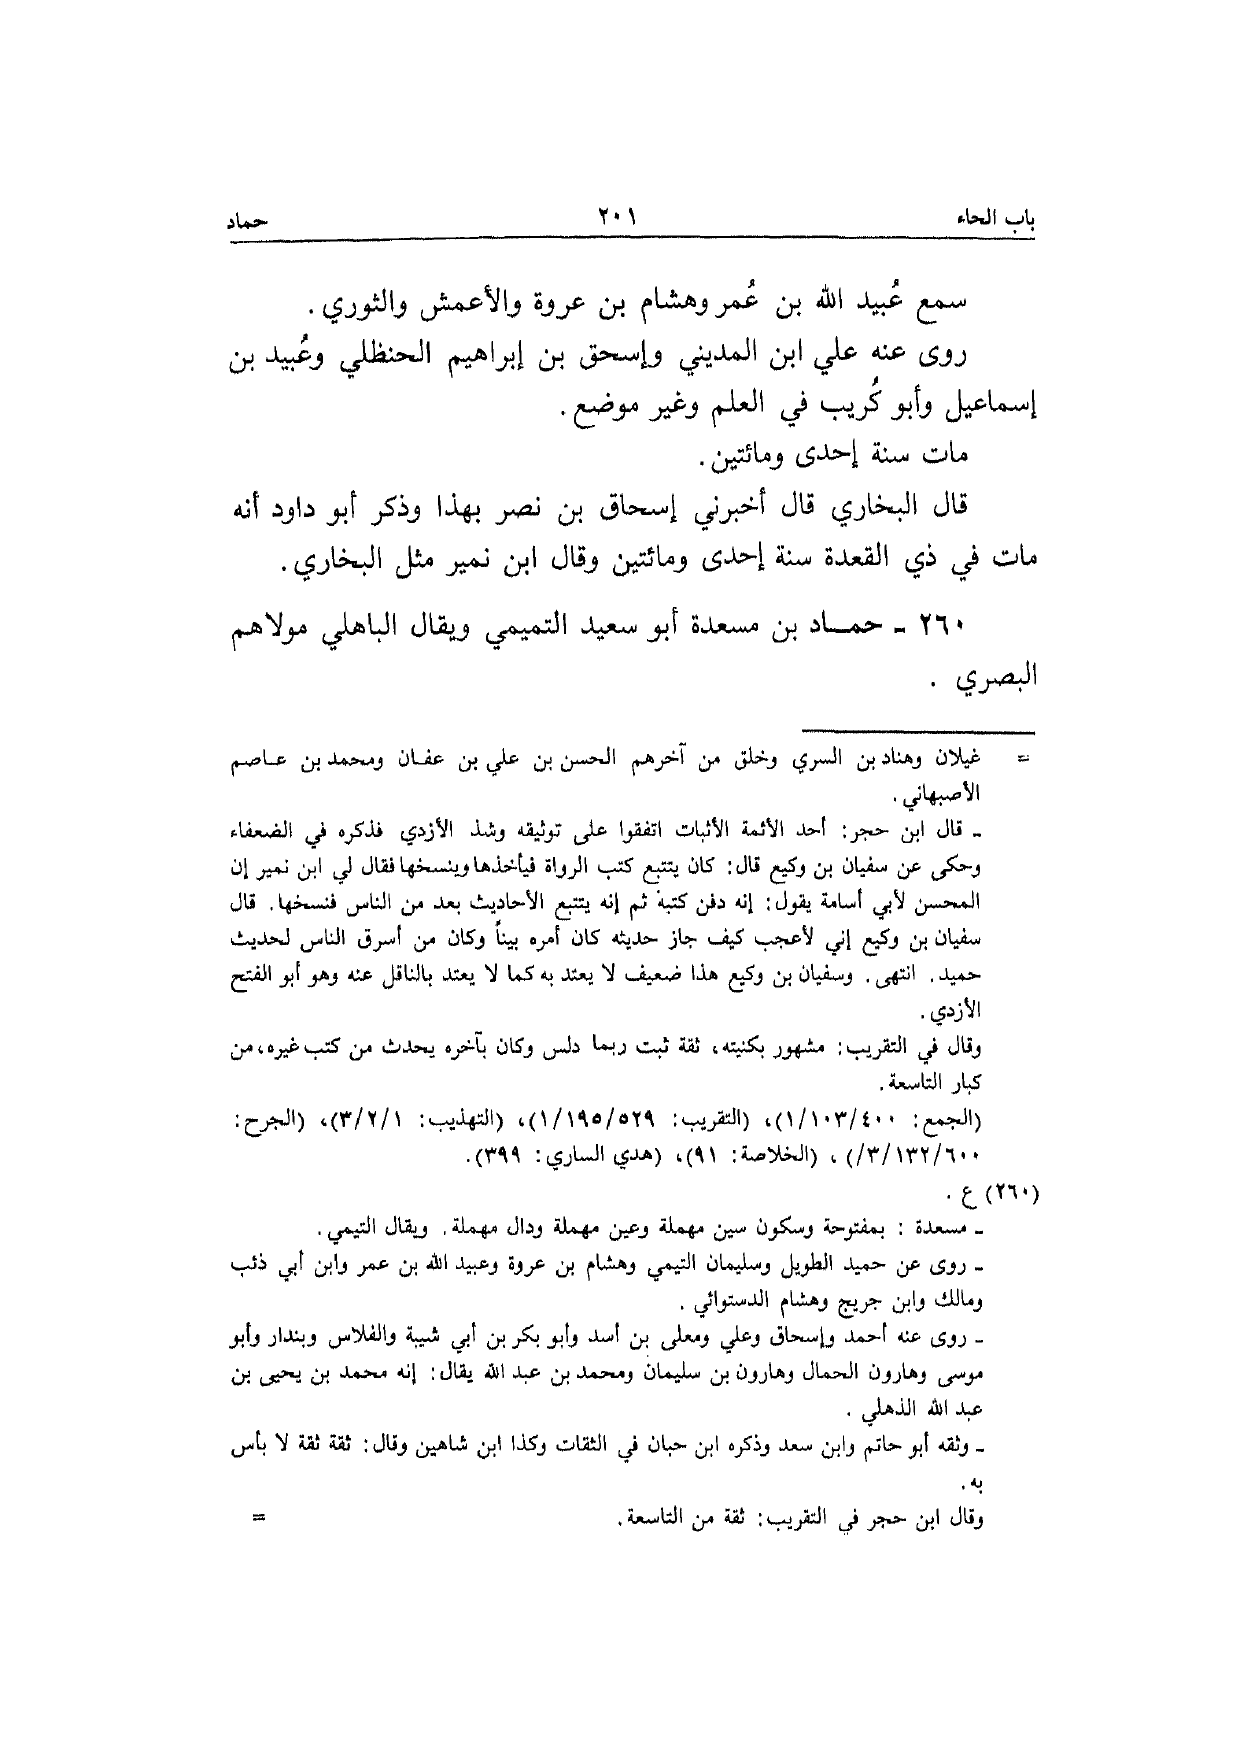 باب الحاء ٢٠١ حماد
سمع عُبيد الله بن عُمر وهشام بن عروة والأعمش والثوري .
روى عنه علي ابن المديني وإسحق بن إبراهيم الحنظلي وعُبيد بن
إسماعيل وأبو كُريب في العلم وغير موضع .
مات سنة إحدى ومائتين .
قال البخاري قال أخبرني إسحاق بن نصر بهذا وذكر أبو داود أنه
مات في ذي القعدة سنة إحدى ومائتين وقال ابن نمير مثل البخاري .
٢٦٠ ـ حماد بن مسعدة أبو سعيد التميمي ويقال الباهلي مولاهم
البصري .
= غيلان وهناد بن السري وخلق من آخرهم الحسن بن علي بن عفان ومحمد بن عاصم
الأصبهاني .
ـ قال ابن حجر : أحد الأئمة الأثبات اتفقوا على توثيقه وشذ الأزدي فذكره في الضعفاء
وحكى عن سفيان بن وكيع قال : كان يتتبع كتب الرواة فيأخذها وينسخها فقال لي ابن نمير إن
المحسن لأبي أسامة يقول : إنه دفن كتبه ثم إنه يتتبع الأحاديث بعد من الناس فنسخها . قال
سفيان بن وكيع إني لأعجب كيف جاز حديثه كان أمره بيناً وكان من أسرق الناس لحديث
حميد . انتهى . وسفيان بن وكيع هذا ضعيف لا يعتد به كما لا يعتد بالناقل عنه وهو أبو الفتح
الأزدي .
وقال في التقريب : مشهور بكنيته ، ثقة ثبت ربما دلس وكان بآخره يحدث من كتب غيره ، من
كبار التاسعة .
(الجمع : ١/١٠٣/٤٠٠) ، (التقريب : ١/١٩٥/٥٢٩) ، (التهذيب : ٣/٢/١) ، (الجرح :
٣/١٣٢/٦٠٠/) ، (الخلاصة : ٩١) ، (هدي الساري : ٣٩٩) .
(٢٦٠) ع .
ـ مسعدة : بمفتوحة وسكون سين مهملة وعين مهملة ودال مهملة . ويقال التيمي .
ـ روى عن حميد الطويل وسليمان التيمي وهشام بن عروة وعبيد الله بن عمر وابن أبي ذئب
ومالك وابن جريج وهشام الدستوائي .
ـ روى عنه أحمد وإسحاق وعلي ومعلى بن أسد وأبو بكر بن أبي شيبة والفلاس وبندار وأبو
موسى وهارون الحمال وهارون بن سليمان ومحمد بن عبد الله يقال : إنه محمد بن يحيى بن
عبد الله الذهلي .
ـ وثقه أبو حاتم وابن سعد وذكره ابن حبان في الثقات وكذا ابن شاهين وقال : ثقة ثقة لا بأس
به .
وقال ابن حجر في التقريب : ثقة من التاسعة . =